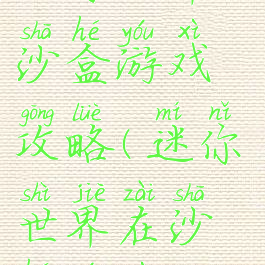 shā hé yóu xì
沙盒游戏
gōng lüè mí nǐ
攻略(迷你
shì jiè zài shā
世界在沙